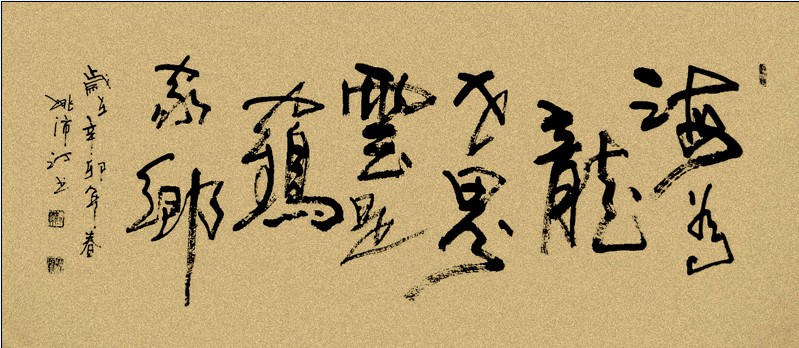 海為
龍
世界
雲是
鶴
家鄉
歲在辛卯年春
姚沛書